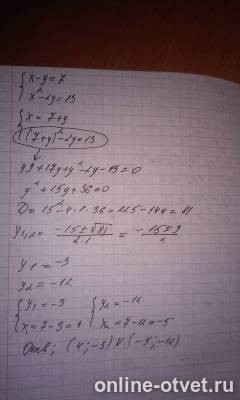 { x-y=7
{ x²-2y=13
{ x=7+y
{ (7+y)²-2y=13
49+17y+y²-2y-13=0
y²+15y+36=0
D=15²-4·1·36=225-144=81
y₁,₂= (-15±√81)/(2·1) = (-15±9)/2
y₁=-3
y₂=-12
{ y₁=-3 { y₂=-12
{ x₁=7-3=4 { x₂=7-12=-5
Отв; (4;-3) и (-5;-12)
online-otvet.ru